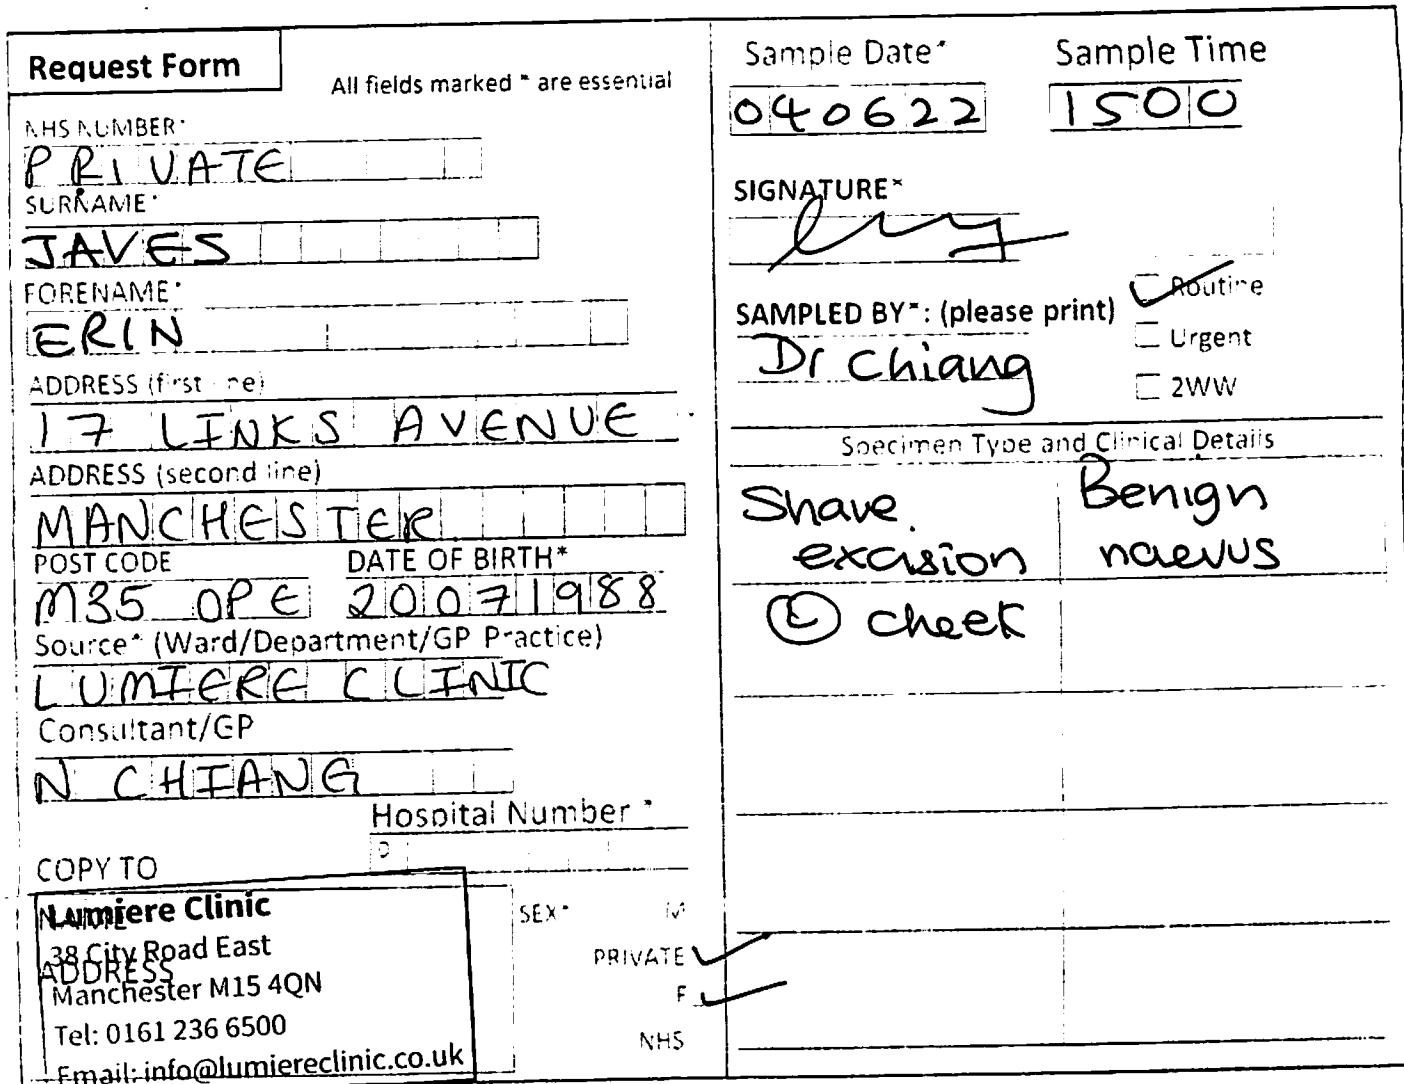 Request Form
All fields marked * are essential
NHS NUMBER*
PRIVATE
SURNAME*
JAVES
FORENAME*
ERIN
ADDRESS (first line)
17 LINKS AVENUE
ADDRESS (second line)
MANCHESTER
POST CODE DATE OF BIRTH*
M35 0PE 20071988
Source* (Ward/Department/GP Practice)
LUMIERE CLINIC
Consultant/GP
N CHIANG
Hospital Number *
D
COPY TO
NAME
ADDRESS
Lumiere Clinic
38 City Road East
Manchester M15 4QN
Tel: 0161 236 6500
Email: info@lumiereclinic.co.uk
SEX* M
PRIVATE ✓
F ✓
NHS
Sample Date* Sample Time
040622 1500
SIGNATURE*
✓ Routine
Urgent
2WW
SAMPLED BY*: (please print)
Dr Chiang
Specimen Type and Clinical Details
Shave Benign
excision naevus
Ⓛ cheek